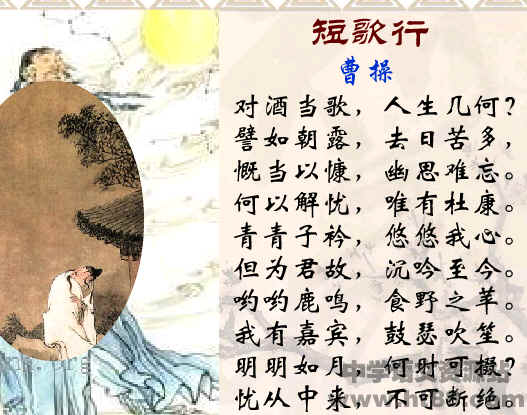 短歌行
曹操
对酒当歌，人生几何？
譬如朝露，去日苦多，
慨当以慷，幽思难忘。
何以解忧，唯有杜康。
青青子衿，悠悠我心。
但为君故，沉吟至今。
哟哟鹿鸣，食野之苹。
我有嘉宾，鼓瑟吹笙。
明明如月，何时可掇？
忧从中来，不可断绝。